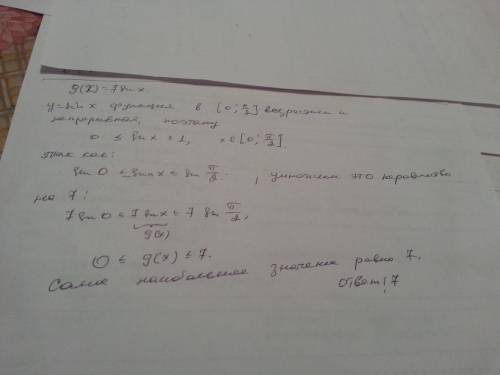 g(x)=7sin x.
y=sin x функция в [0; π/2] возрастает и
непрерывная, поэтому
0 ≤ sin x ≤ 1, x∈[0; π/2],
так как:
sin 0 ≤ sin x ≤ sin π/2, умножаем это неравенство
на 7:
7 sin 0 ≤ 7 sin x ≤ 7 sin π/2,
g(x)
0 ≤ g(x) ≤ 7.
Самое наибольшее значение равно 7.
Ответ: 7